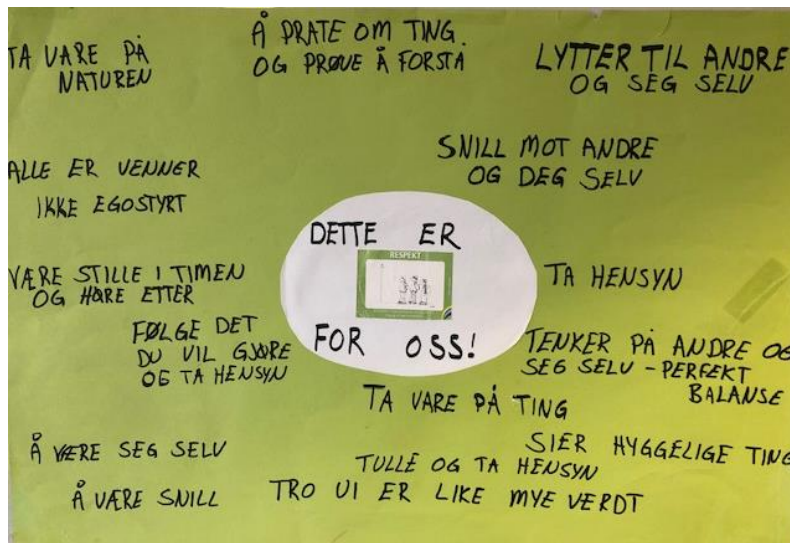 TA VARE PÅ
NATUREN
Å PRATE OM TING
OG PRØVE Å FORSTÅ
LYTTER TIL ANDRE
OG SEG SELV
ALLE ER VENNER
IKKE EGOSTYRT
SNILL MOT ANDRE
OG DEG SELV
DETTE ER
RESPEKT
FOR OSS!
VÆRE STILLE I TIMEN
OG HØRE ETTER
TA HENSYN
FØLGE DET
DU VIL GJØRE
OG TA HENSYN
TENKER PÅ ANDRE OG
SEG SELV - PERFEKT
BALANSE
TA VARE PÅ TING
Å VÆRE SEG SELV
SIER HYGGELIGE TING
TULLE OG TA HENSYN
Å VÆRE SNILL
TRO VI ER LIKE MYE VERDT